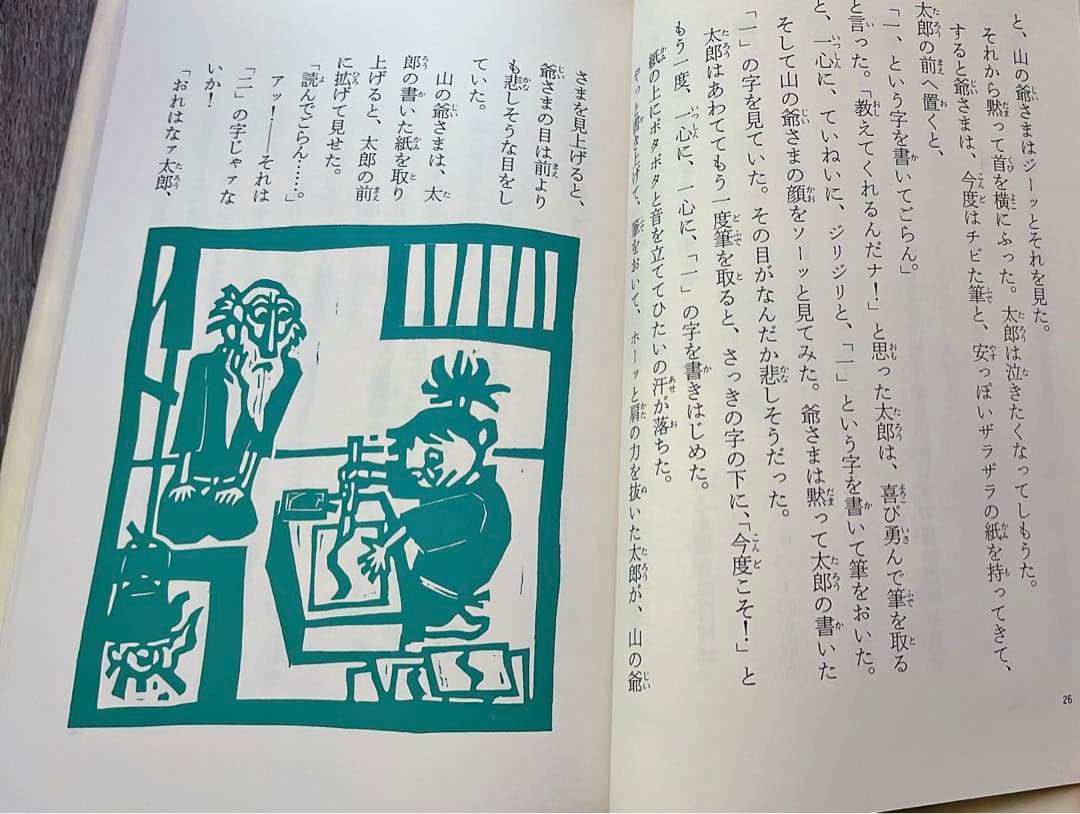 と、山の爺さまはジーッとそれを見た。
それから黙って首を横にふった。太郎は泣きたくなってしもうた。
すると爺さまは、今度はチビた筆と、安っぽいザラザラの紙を持ってきて、
太郎の前へ置くと、
「一、という字を書いてごらん。」
と言った。「教えてくれるんだナ！」と思った太郎は、喜び勇んで筆を取る
と、一心に、ていねいに、ジリジリと、「一」という字を書いて筆をおいた。
そして山の爺さまの顔をソーッと見てみた。爺さまは黙って太郎の書いた
「一」の字を見ていた。その目がなんだか悲しそうだった。
太郎はあわててもう一度筆を取ると、さっきの字の下に、「今度こそ！」と
もう一度、一心に、一心に、「一」の字を書きはじめた。
紙の上にボタボタと音を立ててひたいの汗が落ちた。
やっと書き上げて、筆をおいて、ホーッと肩の力を抜いた太郎が、山の爺
26
さまを見上げると、
爺さまの目は前より
も悲しそうな目をし
ていた。
山の爺さまは、太
郎の書いた紙を取り
上げると、太郎の前
に拡げて見せた。
「読んでごらん……。」
アッ！――それは
「二」の字じゃァな
いか！
「おれはなァ太郎、